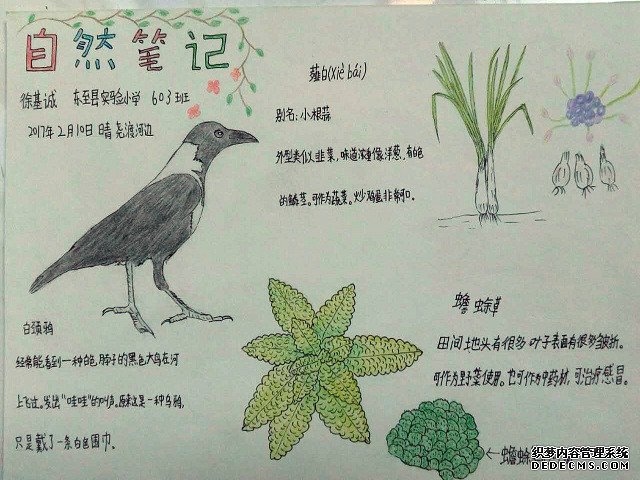 自然笔记
徐基诚 东至县实验小学 603班
2017年2月10日 晴 尧渡河边
薤白(xiè bái)
别名:小根蒜
外型类似韭菜,味道浓重像洋葱,有白色
的鳞茎。可作为蔬菜。炒鸡蛋非常可口。
白颈鸦
经常能看到一种白色脖子的黑色大鸟在河
上飞过。发出“哇哇”的叫声,原来这是一种乌鸦,
只是戴了一条白色围巾。
蟾蜍草
田间地头有很多 叶子表面有很多皱折。
可作为野菜使用。也可作为中药材,可治疗感冒。
←蟾蜍
织梦内容管理系统
DEDECMS.COM